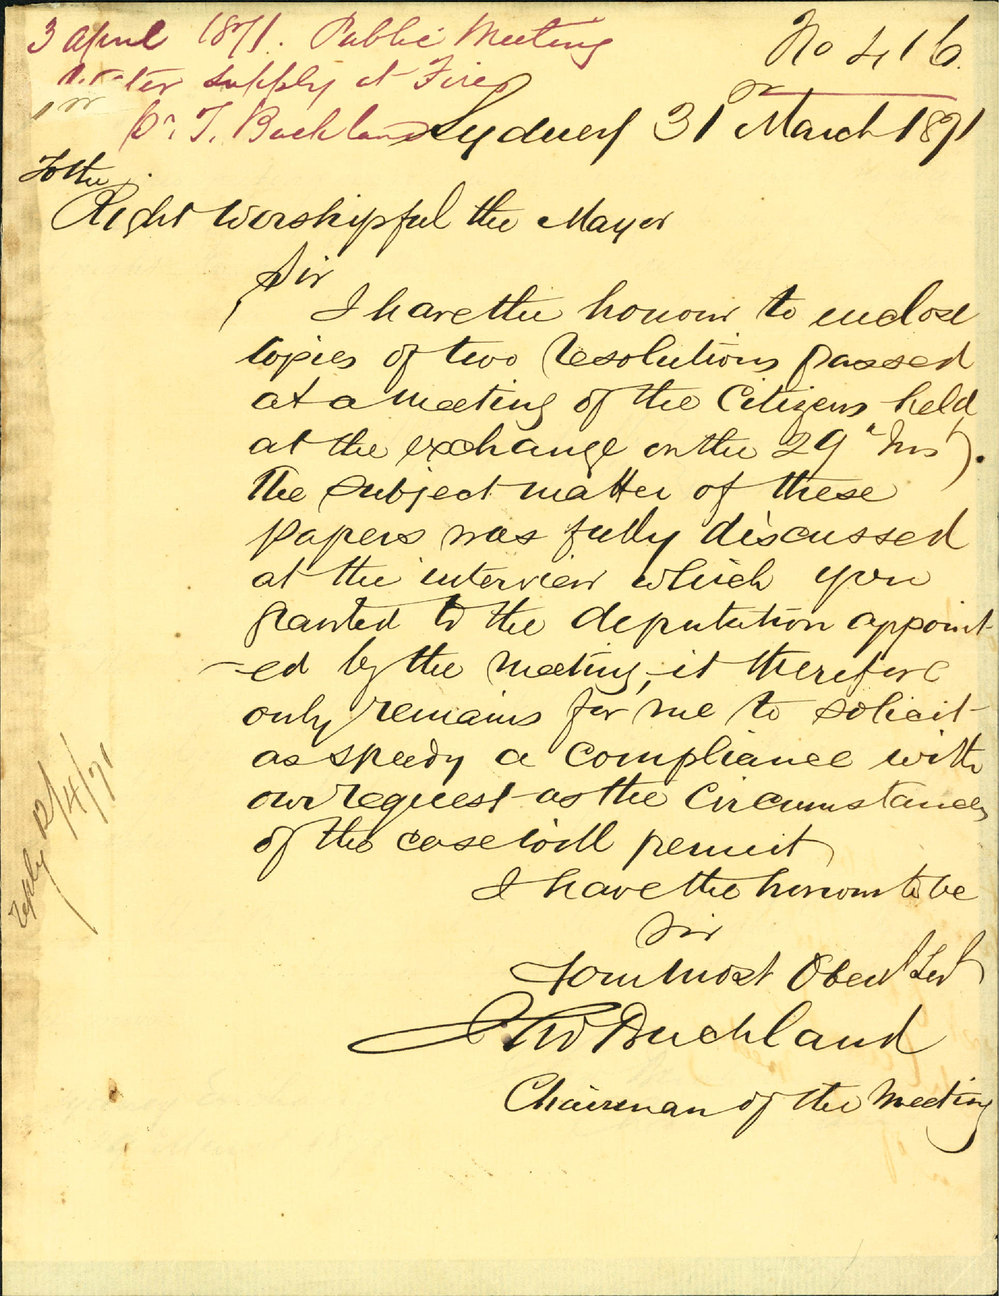 3 April 1871. Public Meeting
Water supply at Fires
pr. T. Buckland
No 416.
Sydney 31 March 1871
To the
Right Worshipful the Mayor
Sir
I have the honour to enclose
copies of two resolutions passed
at a meeting of the Citizens held
at the exchange on the 29th Inst.
The subject matter of these
papers was fully discussed
at the interview which you
granted to the deputation appoint
-ed by the meeting, it therefore
only remains for me to solicit
as speedy a compliance with
our request as the Circumstances
of the case will permit
I have the honour to be
Sir
Your most Obedt Servt
Thos Buckland
Chairman of the Meeting
reply 12/4/71